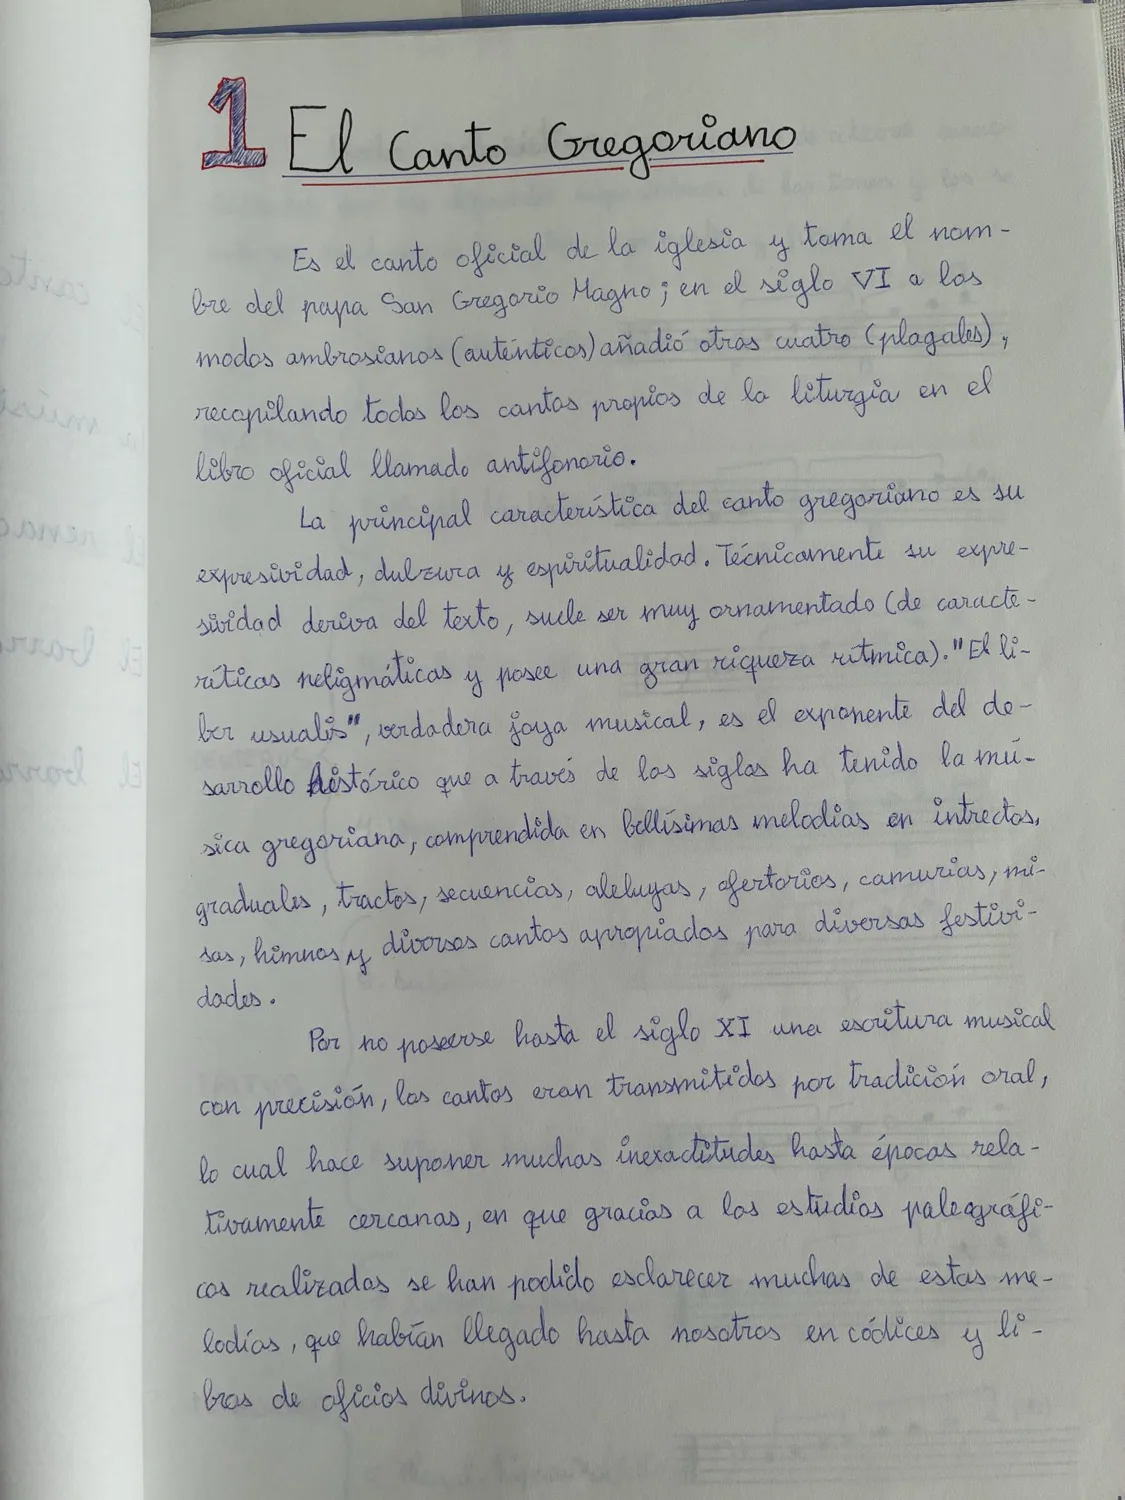 1 El Canto Gregoriano
Es el canto oficial de la iglesia y toma el nom-
bre del papa San Gregorio Magno; en el siglo VI a los
modos ambrosianos (auténticos) añadió otros cuatro (plagales),
recopilando todos los cantos propios de la liturgia en el
libro oficial llamado antifonario.
La principal característica del canto gregoriano es su
expresividad, dulzura y espiritualidad. Técnicamente su expre-
sividad deriva del texto, suele ser muy ornamentado (de caracte-
ríticas neligmáticas y posee una gran riqueza rítmica). "El li-
ber usualis", verdadera joya musical, es el exponente del de-
sarrollo histórico que a través de los siglos ha tenido la mú-
sica gregoriana, comprendida en bellísimas melodías en intrectos,
graduales, tractos, secuencias, aleluyas, ofertorios, camurias, mi-
sas, himnos y diversos cantos apropiados para diversas festivi-
dades.
Por no poseerse hasta el siglo XI una escritura musical
con precisión, los cantos eran transmitidos por tradición oral,
lo cual hace suponer muchas inexactitudes hasta épocas rela-
tivamente cercanas, en que gracias a los estudios paleográfi-
cos realizados se han podido esclarecer muchas de estas me-
lodías, que habían llegado hasta nosotros en códices y li-
bros de oficios divinos.